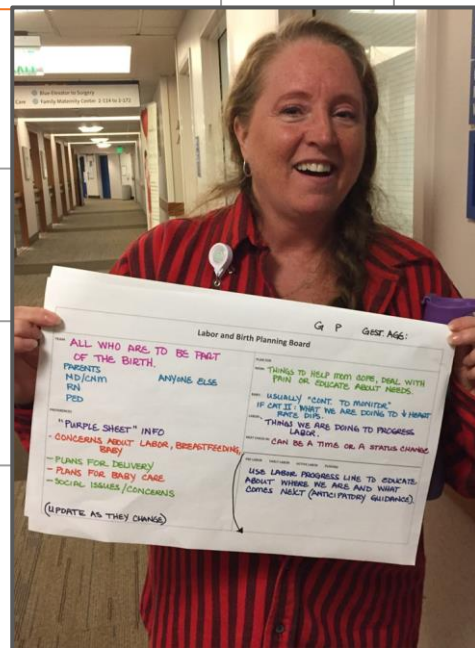 Blue Elevator to Surgery
Care
Family Maternity Center
G P GEST. AGE:
Labor and Birth Planning Board
TEAM
ALL WHO ARE TO BE PART
OF THE BIRTH.
PARENTS
MD/CNM ANYONE ELSE
RN
PED
PREFERENCES
"PURPLE SHEET" INFO
- CONCERNS ABOUT LABOR, BREASTFEEDING,
BABY
- PLANS FOR DELIVERY
- PLANS FOR BABY CARE
- SOCIAL ISSUES/CONCERNS
(UPDATE AS THEY CHANGE)
PLAN FOR
THINGS TO HELP MOM COPE, DEAL WITH
PAIN OR EDUCATE ABOUT NEEDS.
USUALLY "CONT. TO MONITOR"
IF CAT II: WHAT WE ARE DOING TO ↓ HEART
RATE DIPS.
THINGS WE ARE DOING TO PROGRESS
LABOR.
CAN BE A TIME OR A STATUS CHANGE
USE LABOR PROGRESS LINE TO EDUCATE
ABOUT WHERE WE ARE AND WHAT
COMES NEXT (ANTICIPATORY GUIDANCE).